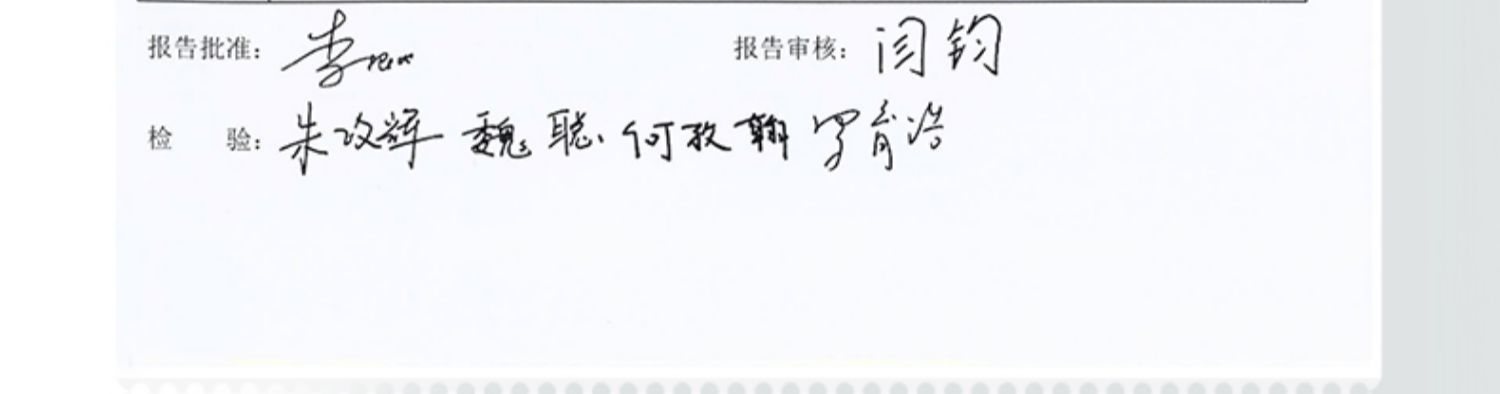 报告批准: 李 报告审核: 闫钧
检 验: 朱政辉 魏聪 何孜翰 罗育浩